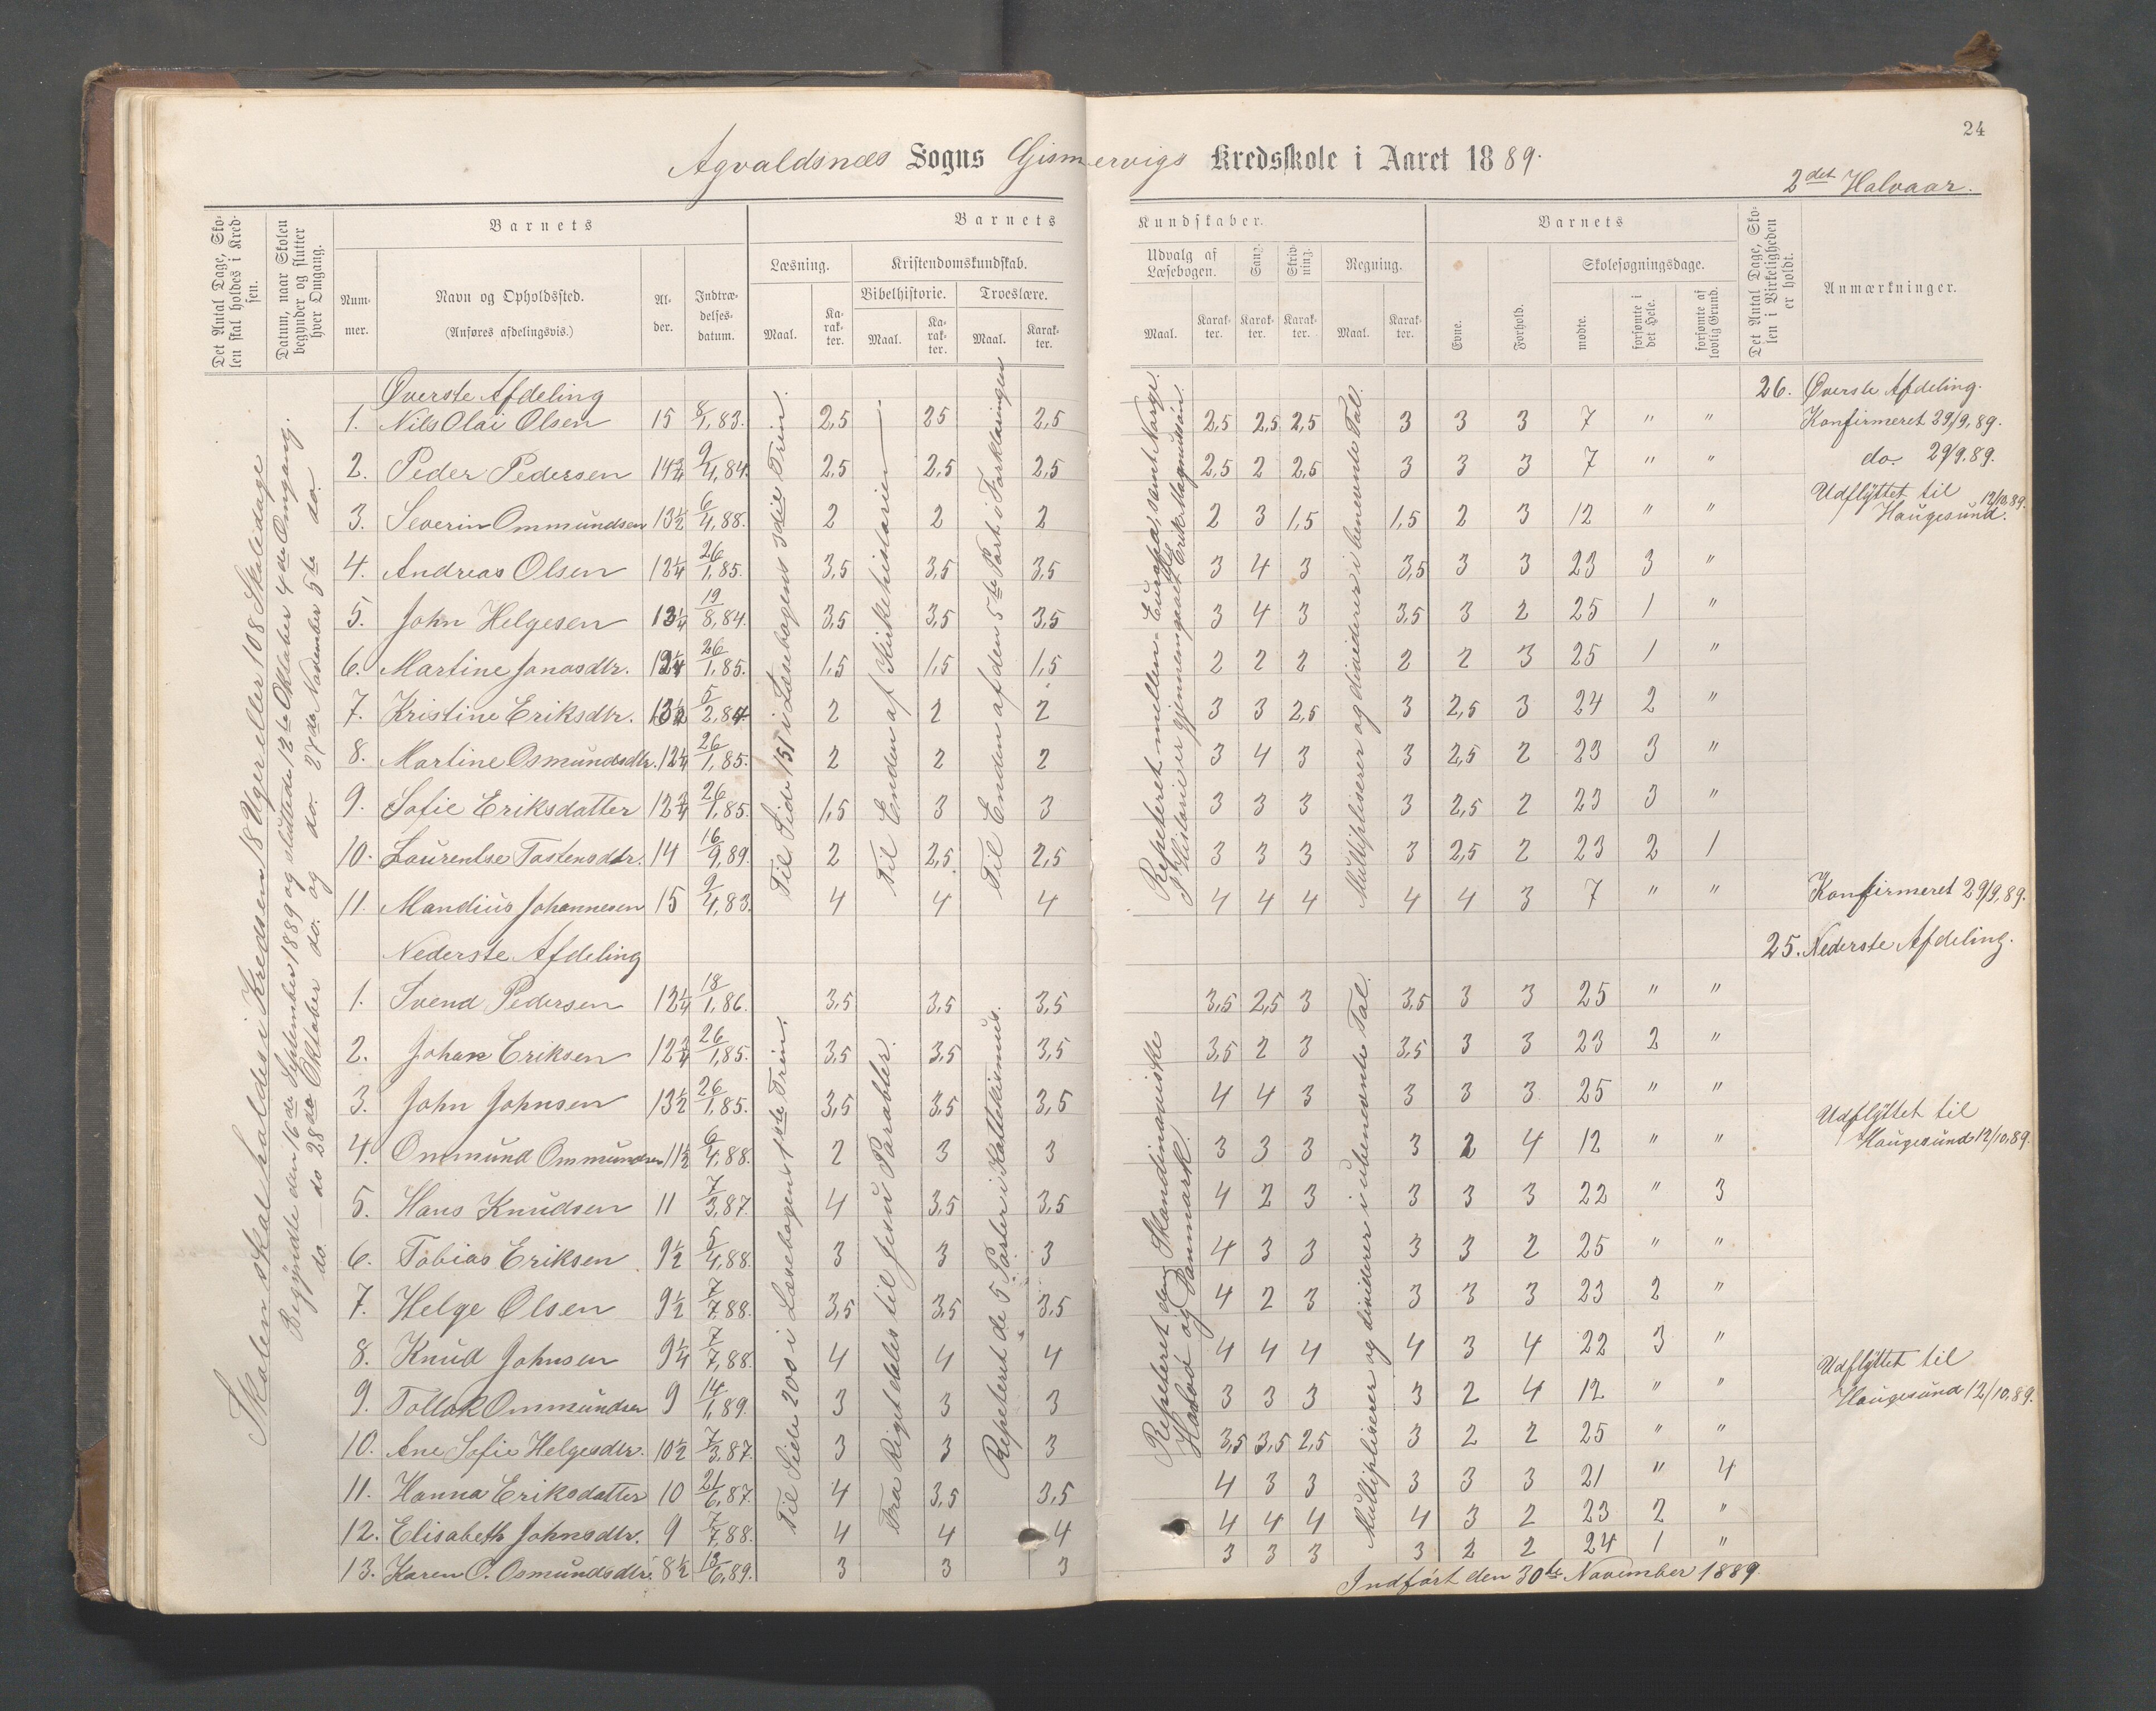 24
Agvaldsnæs Sogns Gismervigs Kredsskole i Aaret 1889.
2det Halvaar.
Det Antal Dage, Skolen skal holdes i Kredsen.
Datum, naar Skolen begynder og slutter hver Omgang.
Barnets
Nummer.
Navn og Opholdssted.
(Anføres afdelingsvis.)
Alder.
Indtrædelsesdatum.
Barnets Kundskaber.
Læsning.
Maal.
Karakter.
Kristendomskundskab.
Bibelhistorie.
Maal.
Karakter.
Troeslære.
Maal.
Karakter.
Udvalg af Læsebogen.
Maal.
Karakter.
Sang.
Karakter.
Skrivning.
Karakter.
Regning.
Maal.
Karakter.
Barnets
Evne.
Forhold.
Skolesøgningsdage.
mødte.
forsømte i det Hele.
forsømte af lovlig Grund.
Det Antal Dage, Skolen i Virkeligheden er holdt.
Anmærkninger.
Skolen skal holdes i Kredsen 18 Uger eller 108 Skoledage
Begyndte den 16de September 1889 og sluttede 12te Oktober 4de Omgang.
do. do 28de Oktober do. og do. 27de November 5te do.
Til Side 151 i Læsebogens 3die Trin.
Til Enden af Kirkehistorien
Til Enden af den 5te Part i Forklaringen
Repeteret mellem Europa, samt Norge.
I Historie er gjennemgaaet Erik Magnussøn.
Multipliserer og dividerer i benevnte Tal.
Øverste Afdeling 26. Øverste Afdeling.
1. Nils Olai Olsen 15 8/1,83. 2,5 25 2,5 2,5 2,5 2,5 3 3 3 7 " " Konfirmeret 29/9,89.
2. Peder Pedersen 14 3/4 9/4,84. 2,5 2,5 2,5 2,5 2 2,5 3 3 3 7 " " do. 29/9.89.
3. Severin Ommundsen 13 1/2 6/4,88. 2 2 2 2 3 1,5 1,5 2 3 12 " " Udflyttet til Haugesund. 12/10,89.
4. Andreas Olsen 12 1/4 26/1,85. 3,5 3,5 3,5 3 4 3 3,5 3 3 23 3 "
5. John Helgesen 13 1/4 19/8,84. 3,5 3,5 3,5 3 4 3 3,5 3 2 25 1 "
6. Martine Jonasdtr. 12 1/4 26/1,85. 1,5 1,5 1,5 2 2 2 2 2 3 25 1 "
7. Kristine Eriksdtr. 13 1/2 5/2,84. 2 2 2 3 3 2,5 3 2,5 3 24 2 "
8. Martine Osmundsdtr. 12 1/4 26/1,85. 2 2 2 3 4 3 3 2,5 2 23 3 "
9. Sofie Eriksdatter 12 3/4 26/1,85. 1,5 3 3 3 3 3 3 2,5 2 23 3 "
10. Laurentse Tostensdtr. 14 16/9,89. 2 2,5 2,5 3 3 3 3 2,5 2 23 2 1
11. Mandius Johannesen 15 9/4,83. 4 4 4 4 4 4 4 4 3 7 " " Konfirmeret 29/9,89.
Nederste Afdeling 25. Nederste Afdeling.
Til Side 200 i Læsebogens 1ste Trin.
Fra Riget deles til Jesu Parabler.
Repeteret de 5 Parter i Kattekismus.
Repeteret den Skandinaviske Halvø og Danmark.
Multipliserer og dividerer i ubenevnte Tal.
1. Svend Pedersen 12 1/4 18/1,86. 3,5 3,5 3,5 3,5 2,5 3 3,5 3 3 25 " "
2. Johan Eriksen 12 3/4 26/1,85. 3,5 3,5 3,5 3,5 2 3 3,5 3 3 23 2 "
3. John Johnsen 13 1/2 26/1,85. 3,5 3,5 3,5 4 4 3 3 3 3 25 " "
4. Ommund Ommundsen 11 1/2 6/4,88. 2 3 3 3 3 3 3 2 4 12 " " Udflyttet til Haugesund 12/10,89.
5. Hans Knudsen 11 7/3,87. 4 3,5 3,5 4 2 3 3 3 3 22 " 3
6. Tobias Eriksen 9 1/2 5/4,88. 3 3 3 4 3 3 3 3 2 25 " "
7. Helge Olsen 9 1/2 7/7,88. 3,5 3,5 3,5 4 2 3 3 3 3 23 2 "
8. Knud Johnsen 9 1/4 7/7,88. 4 4 4 4 4 4 4 3 4 22 3 "
9. Tollak Ommundsen 9 14/1,89. 3 3 3 3 3 3 3 2 4 12 " " Udflyttet til Haugesund 12/10,89.
10. Ane Sofie Helgesdtr. 10 1/2 7/3,87. 3 3 3 3,5 3,5 2,5 3 2 2 25 " "
11. Hanna Eriksdatter 10 21/6,87. 4 3,5 3,5 4 3 3 3 3 3 21 " 4
12. Elisabeth Johnsdtr. 9 7/7,88. 4 4 4 4 4 4 4 3 2 23 2 "
13. Karen O. Osmundsdtr. 8 1/2 13/6,89. 3 3 3 3 3 3 3 2 2 24 1 "
Indført den 30te November 1889.